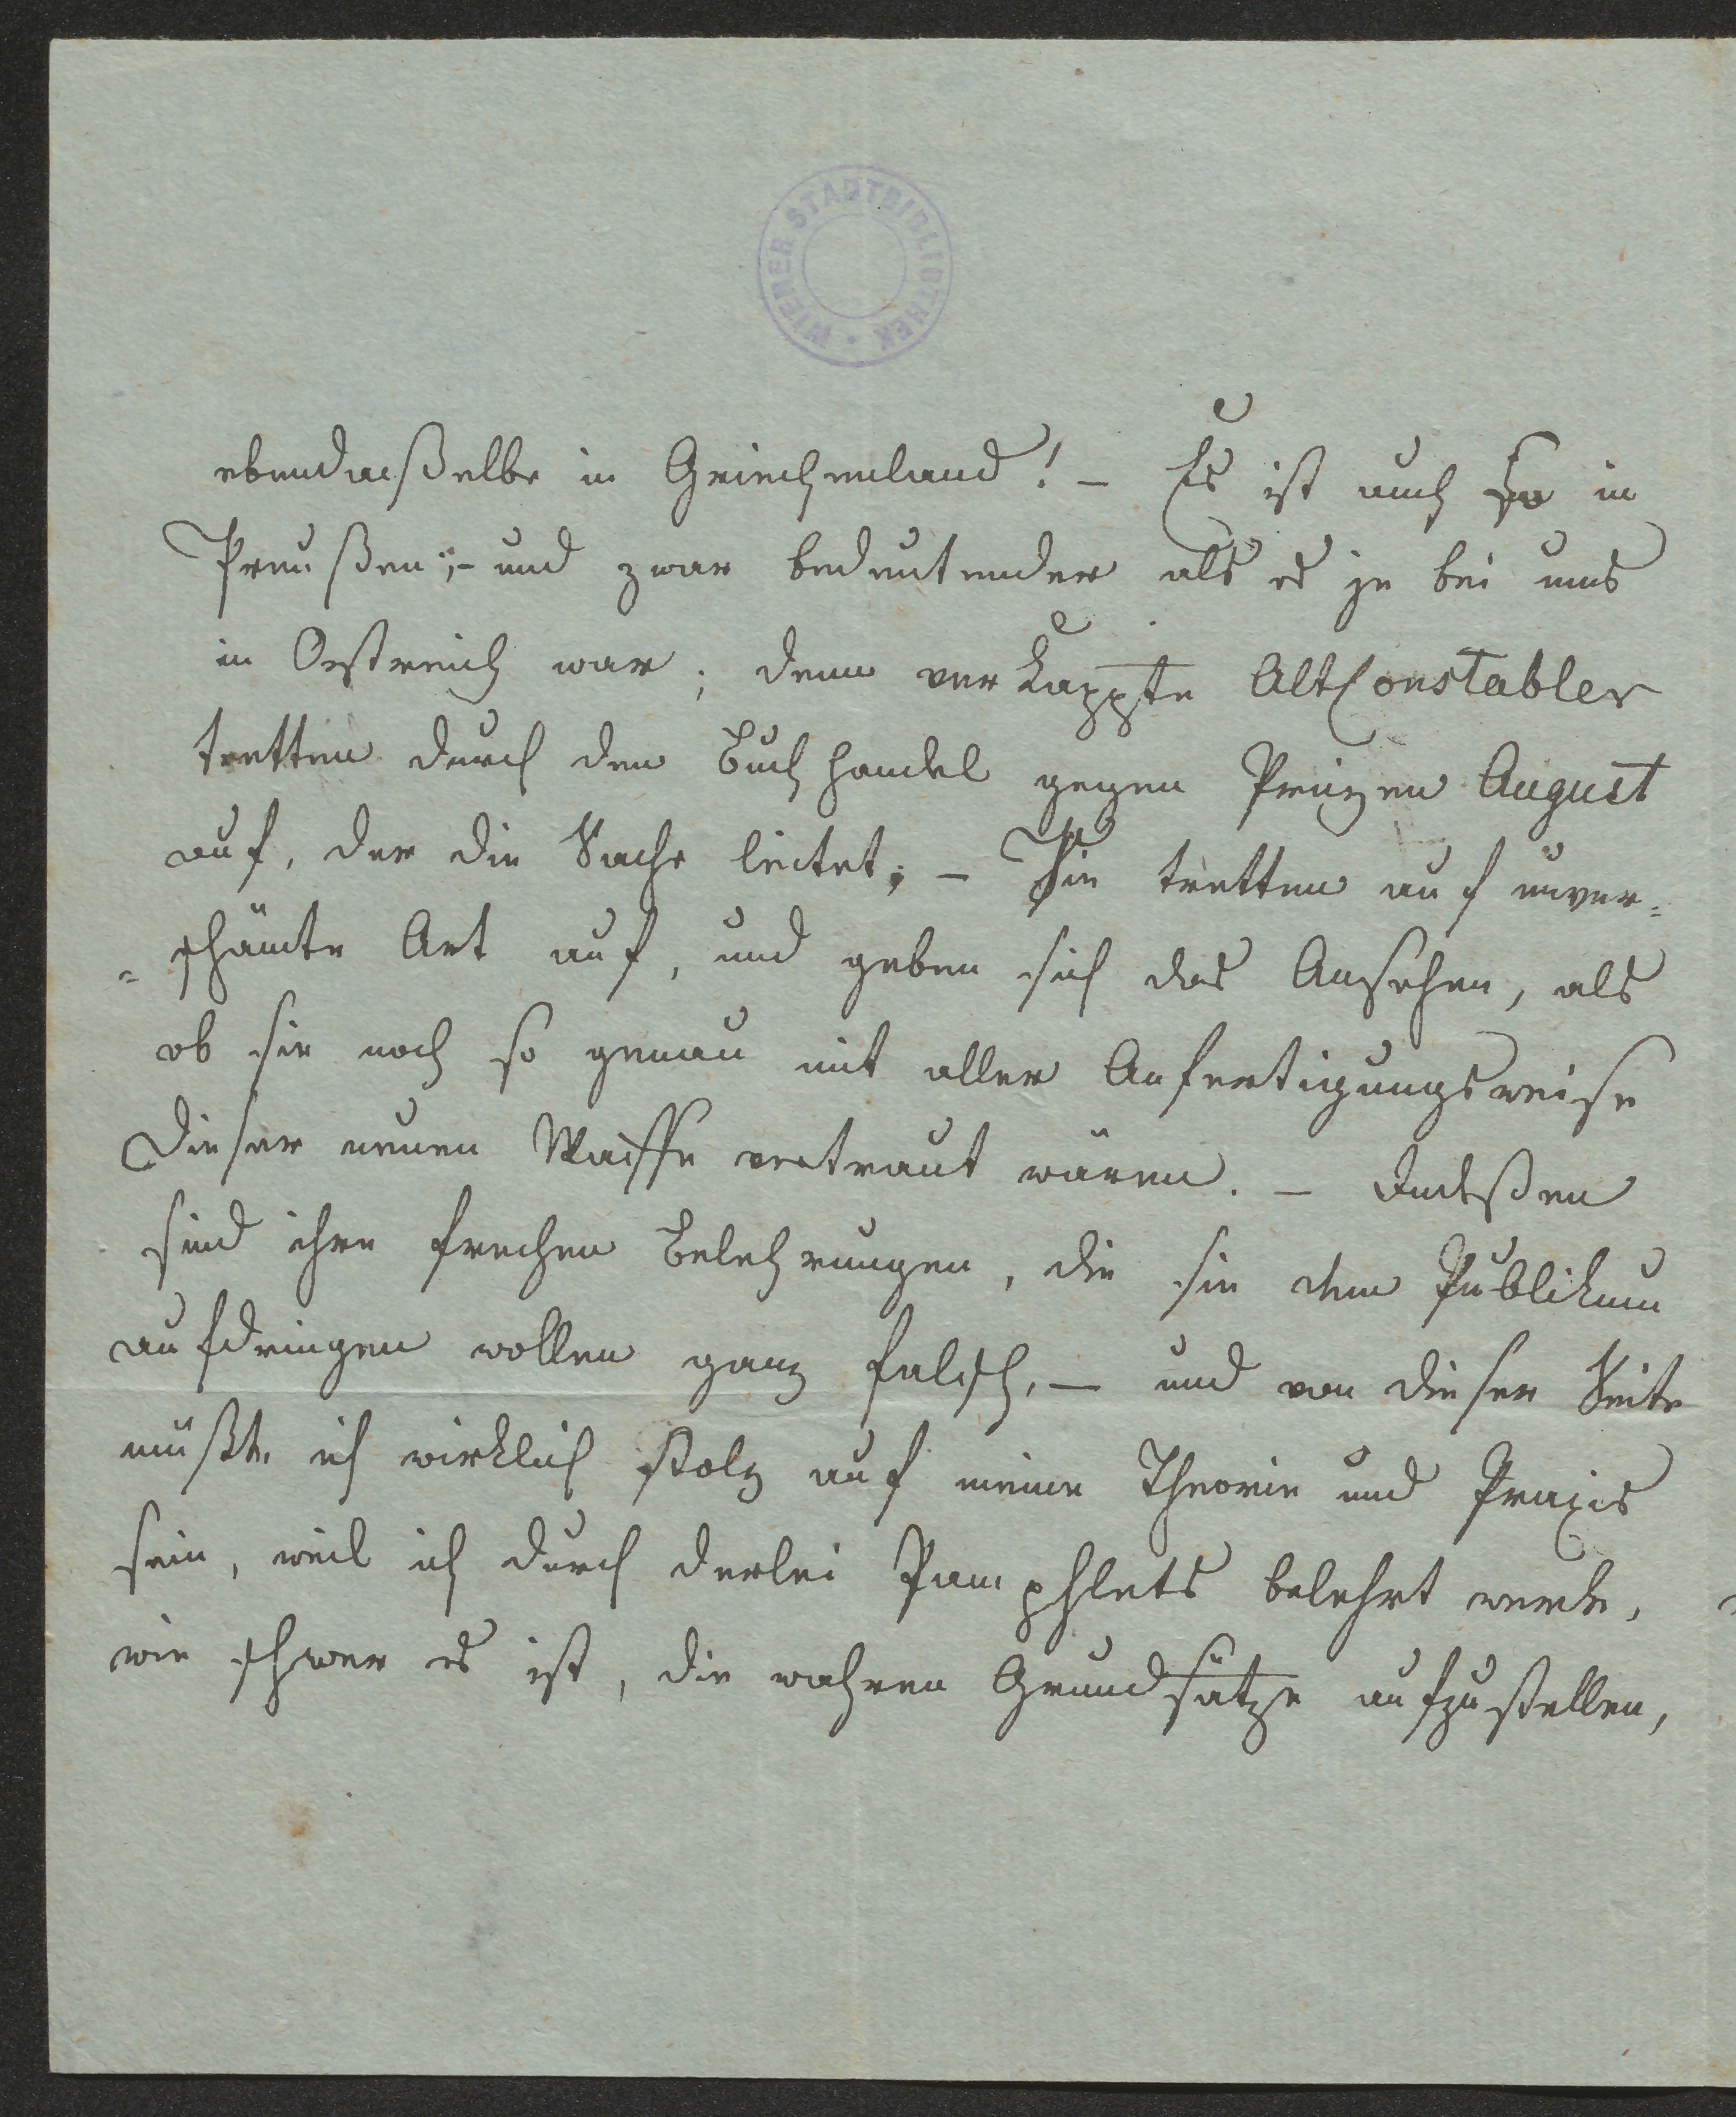 WIENER STADTBIBLIOTHEK
ebendaßelbe in Griechenland! – Es ist auch so in
Preußen; – und zwar bedeutender als es je bei uns
in Oestreich war; denn verkappte AltConstabler
tretten durch den Buchhandel gegen Prinzen August
auf, der die Sache leitet; – Sie tretten auf unver=
=schämte Art auf, und geben sich das Ansehen, als
ob sie noch so genau mit aller Anfertigungsweise
dieser neuen Waffe vertraut wären. – Indeßen
sind ihre frechen Belehrungen, die sie dem Publikum
aufdringen wollen ganz falsch, – und von dieser Seite
müßte ich wirklich stolz auf meine Theorie und Praxis
sein, weil ich durch derlei Pamphlets belehrt werde,
wie schwer es ist, die wahren Grundsätze aufzustellen,